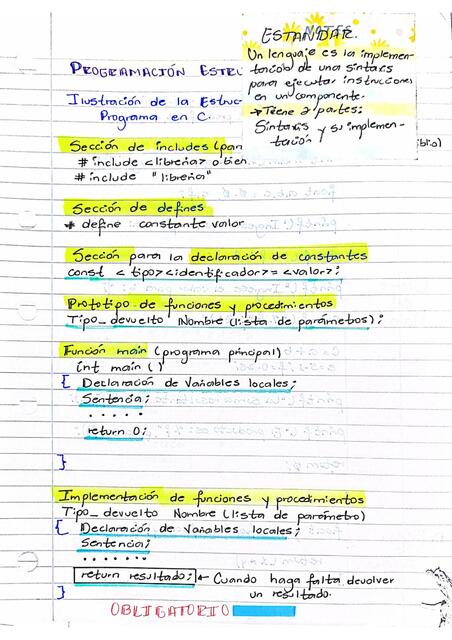 ESTANDAR.
Un lenguaje es la implemen-
tación de una sintaxis
para ejecutar instrucciones
en un componente.
→ Tiene 2 partes:
Sintaxis y su implemen-
tación
PROGRAMACIÓN ESTRU
Ilustración de la Estruc
Programa en C.
Sección de includes (par
# include <libreria> o bien
# include "libreria"
Sección de defines
# define constante valor
Sección para la declaración de constantes
const <tipo> <identificador> = <valor>;
Prototipo de funciones y procedimientos
Tipo_devuelto Nombre (lista de parámetros);
Función main (programa principal)
int main ()
{ Declaración de Variables locales;
Sentencia;
.....
return 0;
}
Implementación de funciones y procedimientos
Tipo_devuelto Nombre (lista de parámetro)
{ Declaración de Variables locales;
Sentencia;
.......
return resultado; ← Cuando haga falta devolver
} un resultado.
OBLIGATORIO